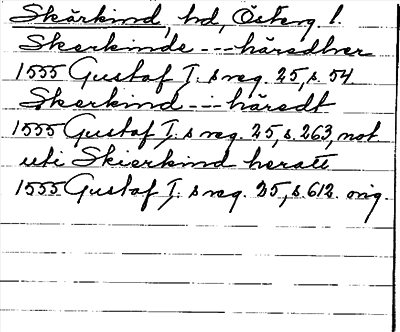 Skärkind, hd, Österg. l.
Skerkinde --- häredher
1555 Gustaf I:s reg. 25, s. 54.
Skerkind --- häredt
1555 Gustaf I:s reg. 25, s. 263, not
uti Skierkind heratt
1555 Gustaf I:s reg. 25, s. 612. orig.